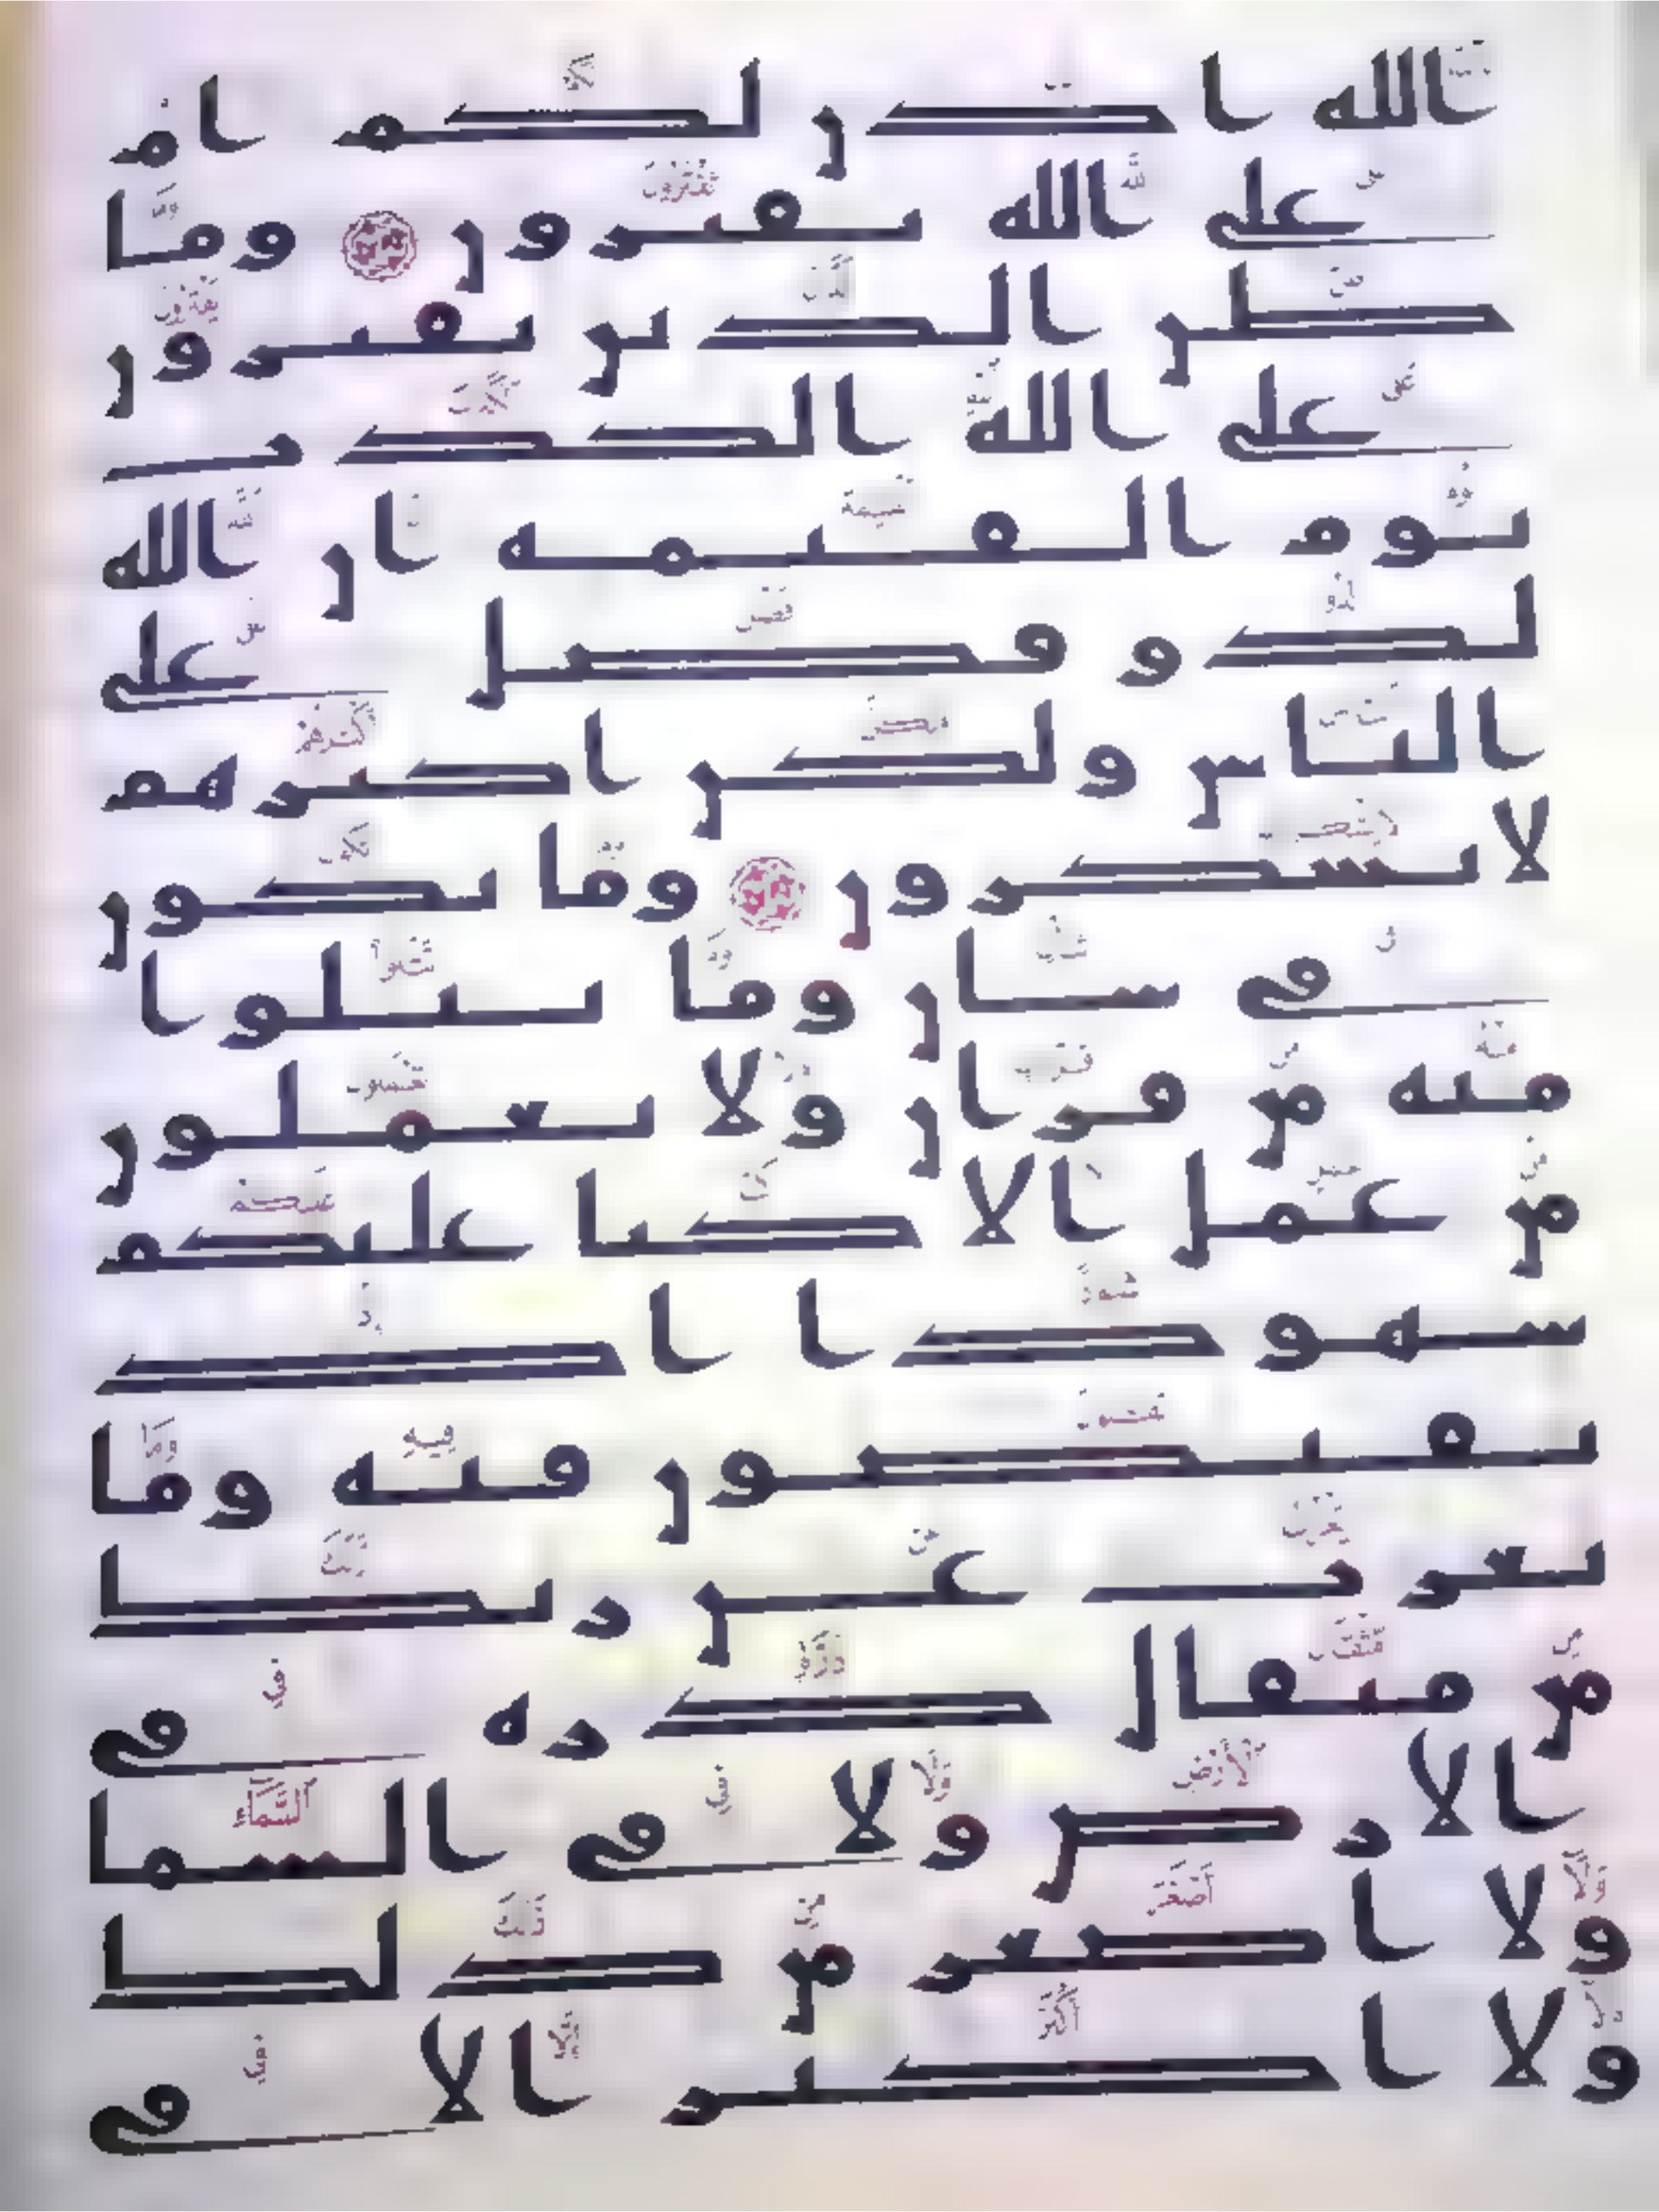 الله اذن لكم ام
على الله تفترون وما
ظن الذين يفترون
على الله الكذب
يوم القيمة ان الله
لذو فضل على
الناس ولكن اكثرهم
لا يشكرون وما تكون
في شان وما تتلوا
منه من قران ولا تعملون
من عمل الا كنا عليكم
شهودا اذ
تفيضون فيه وما
يعزب عن ربك
من مثقال ذرة في
الارض ولا في السما
ولا اصغر من ذلك
ولا اكبر الا في